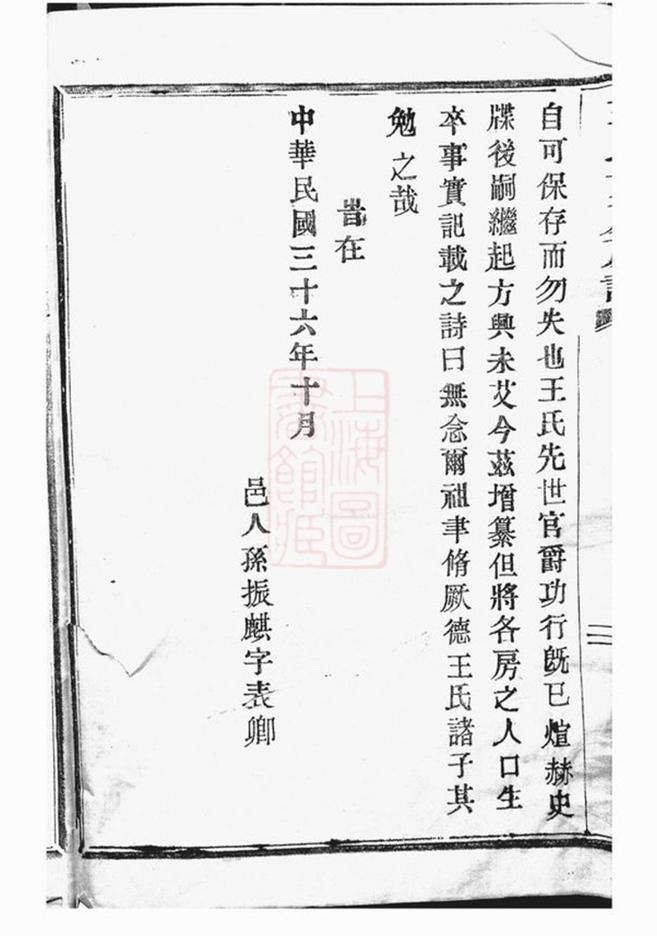 自可保存而勿失也王氏先世官爵功行既已煊赫史
牒後嗣繼起方興未艾今茲增纂但將各房之人口生
卒事實記載之詩曰無念爾祖聿脩厥德王氏諸子其
勉之哉
旹在
中華民國三十六年十月
邑人孫振麒字表卿
上海圖
書館藏